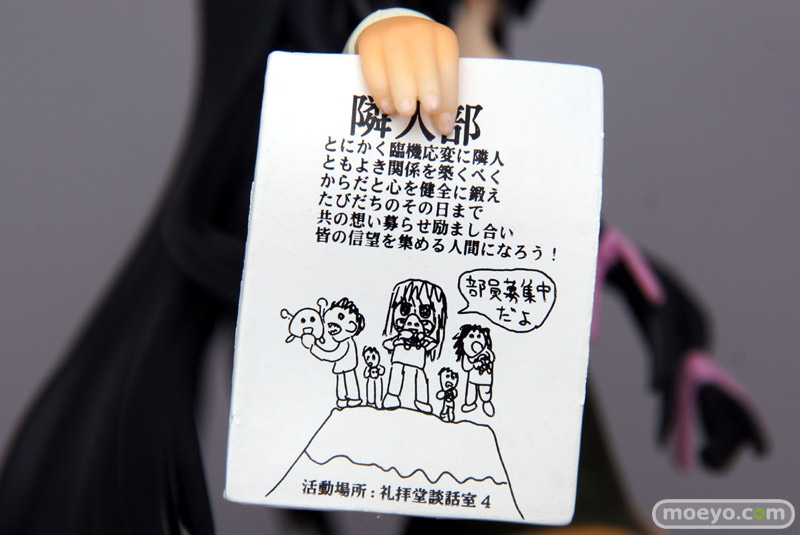 隣人部
とにかく臨機応変に隣人
ともよき関係を築くべく
からだと心を健全に鍛え
たびだちのその日まで
共の想い募らせ励まし合い
皆の信望を集める人間になろう！
部員募集中
だよ
活動場所：礼拝堂談話室４
moeyo.com